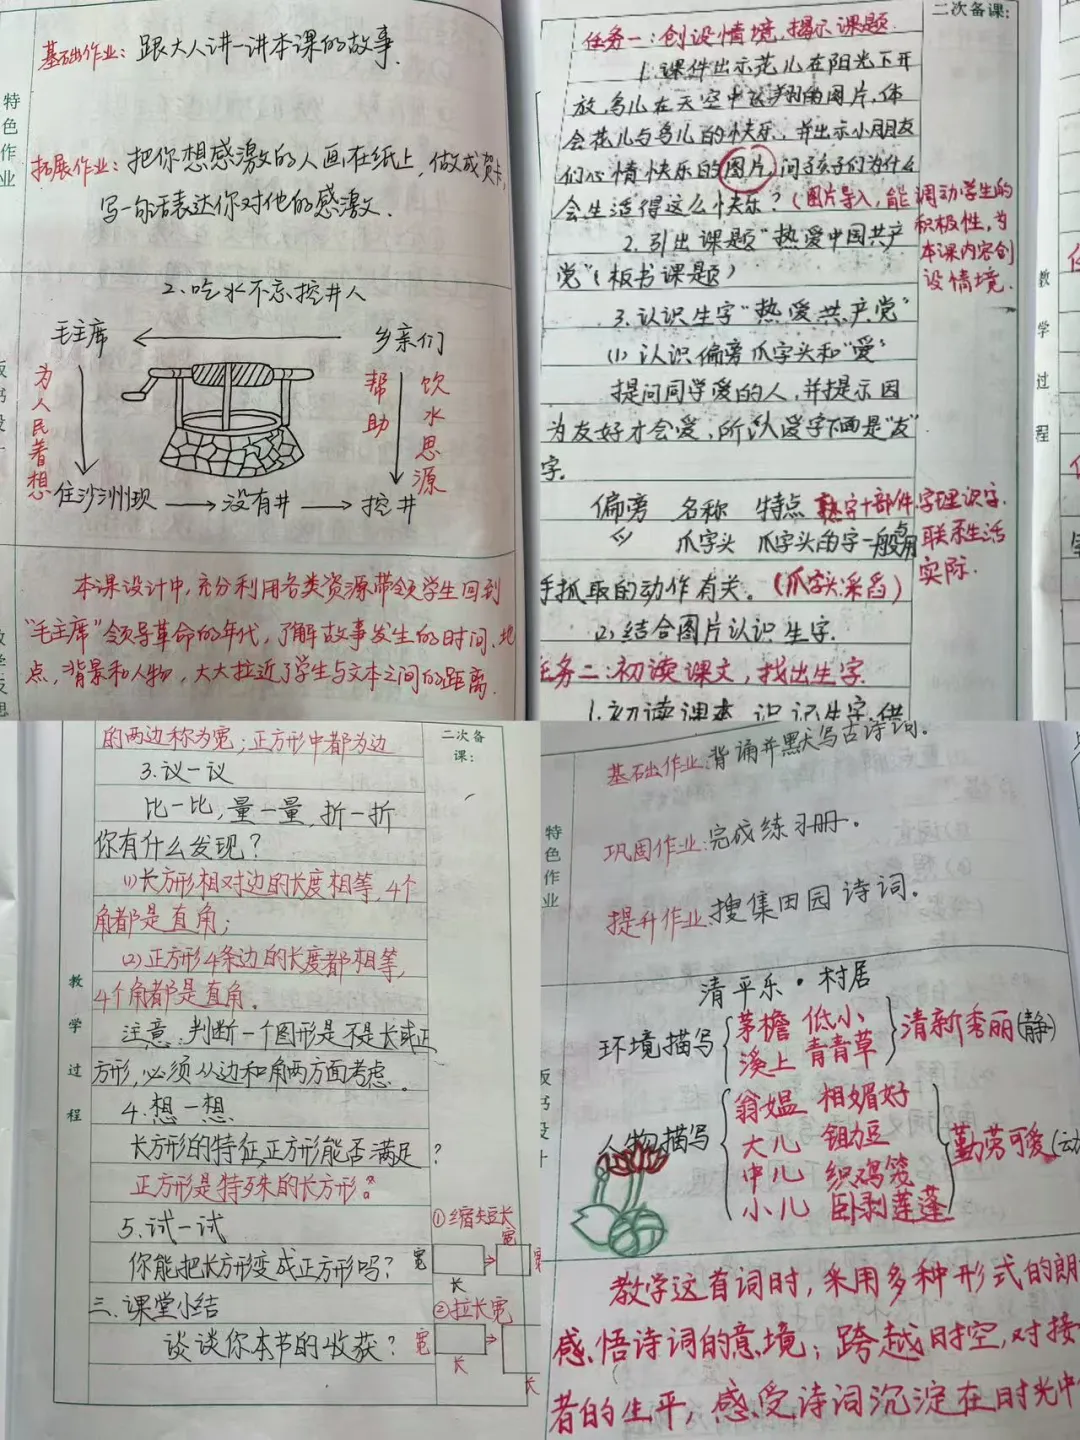 特色作业
基础作业：跟大人讲一讲本课的故事.
拓展作业：把你想感激的人画在纸上，做成贺卡，
写一句话表达你对他的感激.
2.吃水不忘挖井人
毛主席
乡亲们
为人民着想
帮助
饮水思源
住沙洲坝
没有井
挖井
本课设计中，充分利用各类资源带领学生回到
“毛主席”领导革命的年代，了解故事发生的时间、地
点，背景和人物，大大拉近了学生与文本之间的距离.
二次备课:
任务一：创设情境，揭示课题.
1.课件出示花儿在阳光下开
放，鸟儿在天空中飞翔的图片，体
会花儿与鸟儿的快乐，并出示小朋友
们心情快乐的图片，问孩子们为什么
会生活得这么快乐？（图片导入，能调动学生的
积极性，为
本课内容创
设情境.
2.引出课题“热爱中国共产
党”（板书课题）
3.认识生字“热爱共产党”
(1)认识偏旁爪字头和“爱”
提问同学爱的人，并提示因
为友好才会爱，所以爱字下面是“友”
字.
偏旁 名称 特点 熟字+部件.字理识字.
爫 爪字头 爪字头的字一般与用
联系生活
手抓取的动作有关.（爪字头：采 舀）
实际.
(2)结合图片认识生字.
任务二：初读课文，找出生字.
1.初读课本 识记生字 借
教学过程
的两边称为宽；正方形中都为边
二次备课:
3.议一议
比一比，量一量，折一折
你有什么发现？
(1)长方形相对边的长度相等，4个
角都是直角；
(2)正方形4条边的长度都相等，
4个角都是直角.
注意：判断一个图形是不是长或正
方形，必须从边和角两方面考虑.
4.想一想
长方形的特征，正方形能否满足？
正方形是特殊的长方形.
5.试一试
你能把长方形变成正方形吗？
三.课堂小结
谈谈你本节的收获？
①缩短长
宽
宽
宽
长
②拉长宽
宽
长
长
教学过程
特色作业
基础作业：背诵并默写古诗词。
巩固作业：完成练习册。
提升作业：搜集田园诗词。
清平乐·村居
环境描写
茅檐 低小
溪上 青青草
清新秀丽(静)
人物描写
翁媪 相媚好
大儿 锄豆
中儿 织鸡笼
小儿 卧剥莲蓬
勤劳可爱
教学这首词时，采用多种形式的朗
感悟诗词的意境；跨越时空，对接
者的生平，感受诗词沉淀在时光中